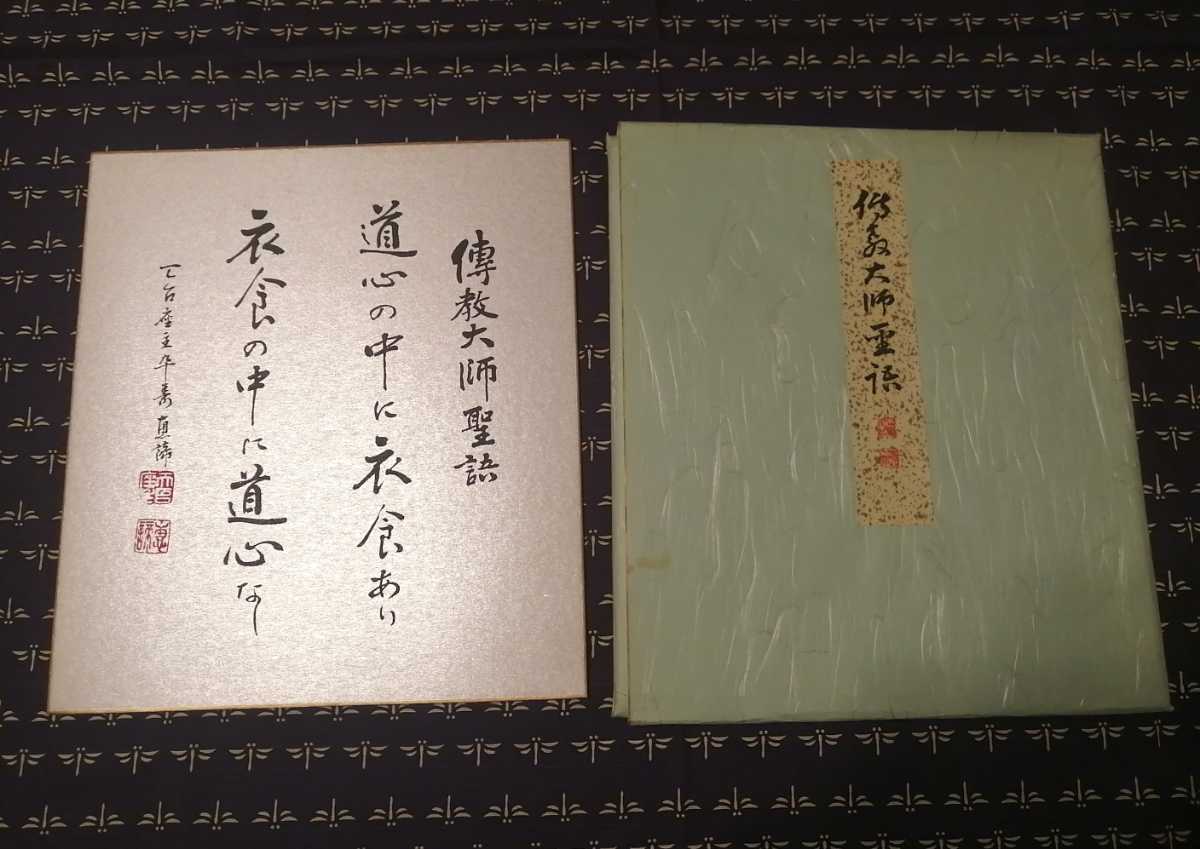 傳教大師聖語
道心の中に衣食あり
衣食の中に道心なし
天台座主半寿恵諦
傳教大師聖語